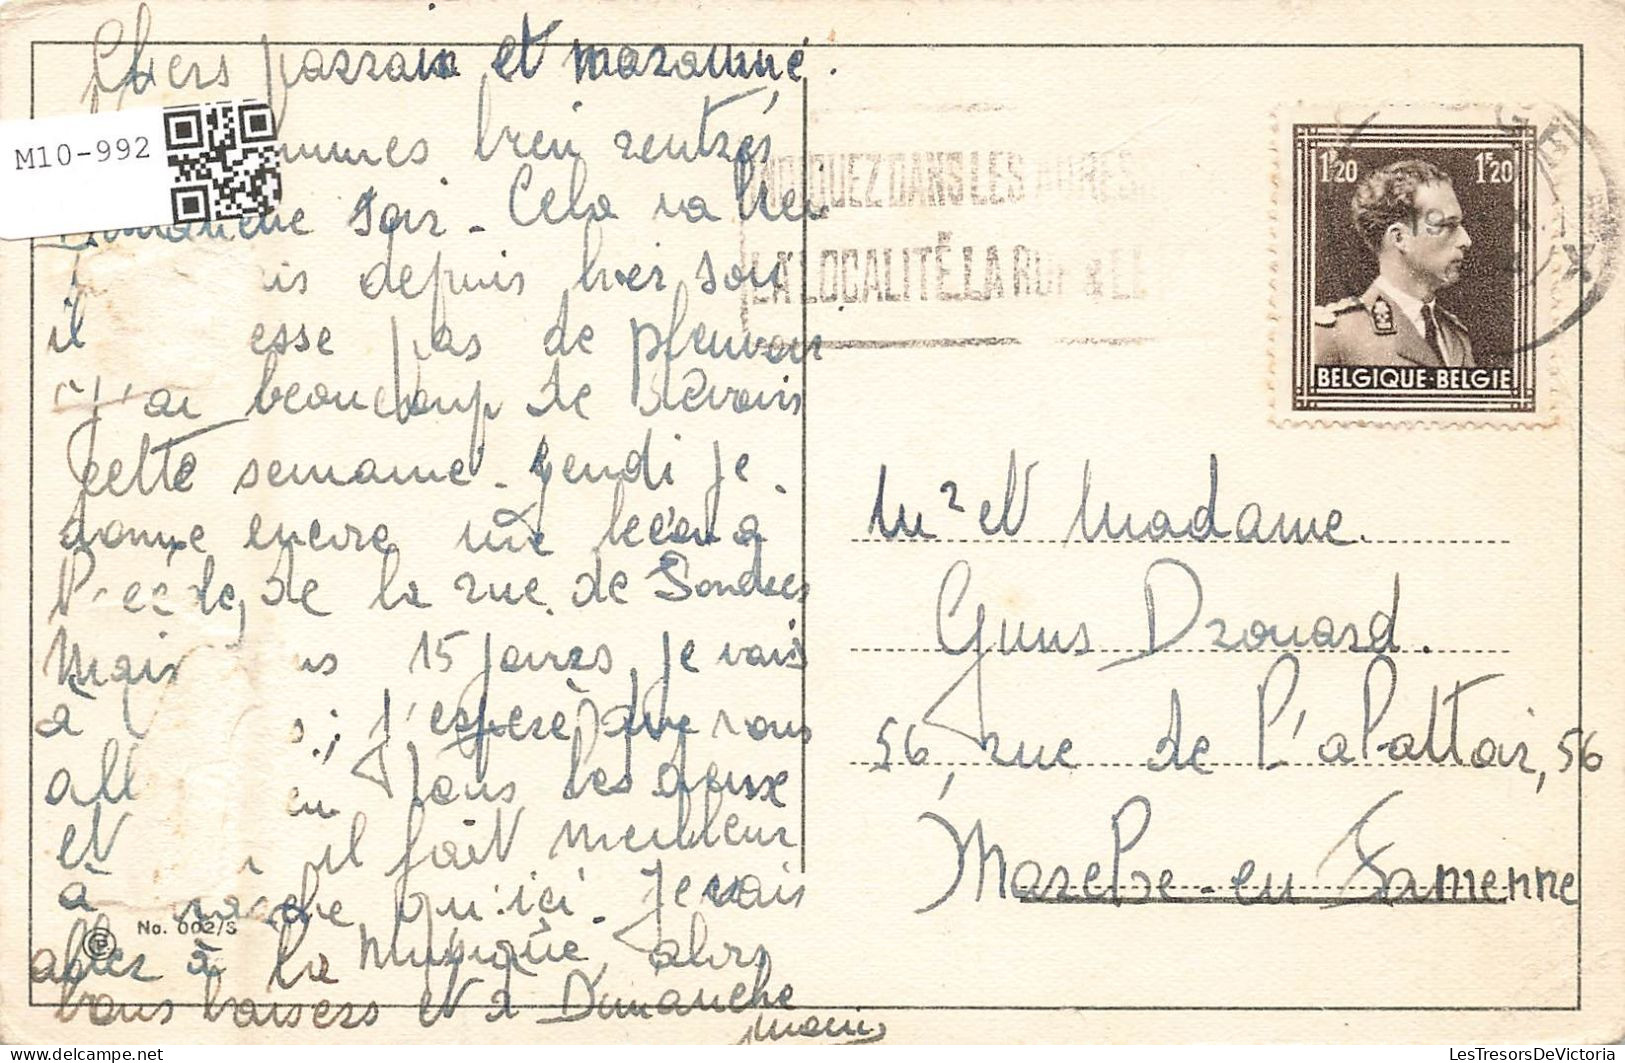 Chers parrain et marainne.
M10-992
bien rentrés
Dimanche soir - Cela va bien
depuis hier soir
il esse pas de pleuvoir
J'ai beaucoup de devoirs
cette semaine. Jeudi je
donne encore une lecon a
de la rue de Londres
Mais 15 jours, je vais
à j'espere que vous
all en tous les deux
et il fait meilleur
à qu'ici. Je vais
No. 002/S
aller à la musique, alors
bons baisers et à Dimanche
INDIQUEZ DANS LES ADRES
LA LOCALITÉ, LA RUE & LE
1F20 1F20
BELGIQUE·BELGIE
Mr et Madame.
Drouard.
56, rue de l'abattoir, 56
Marche-en Famenne
LesTresorsDeVictoria